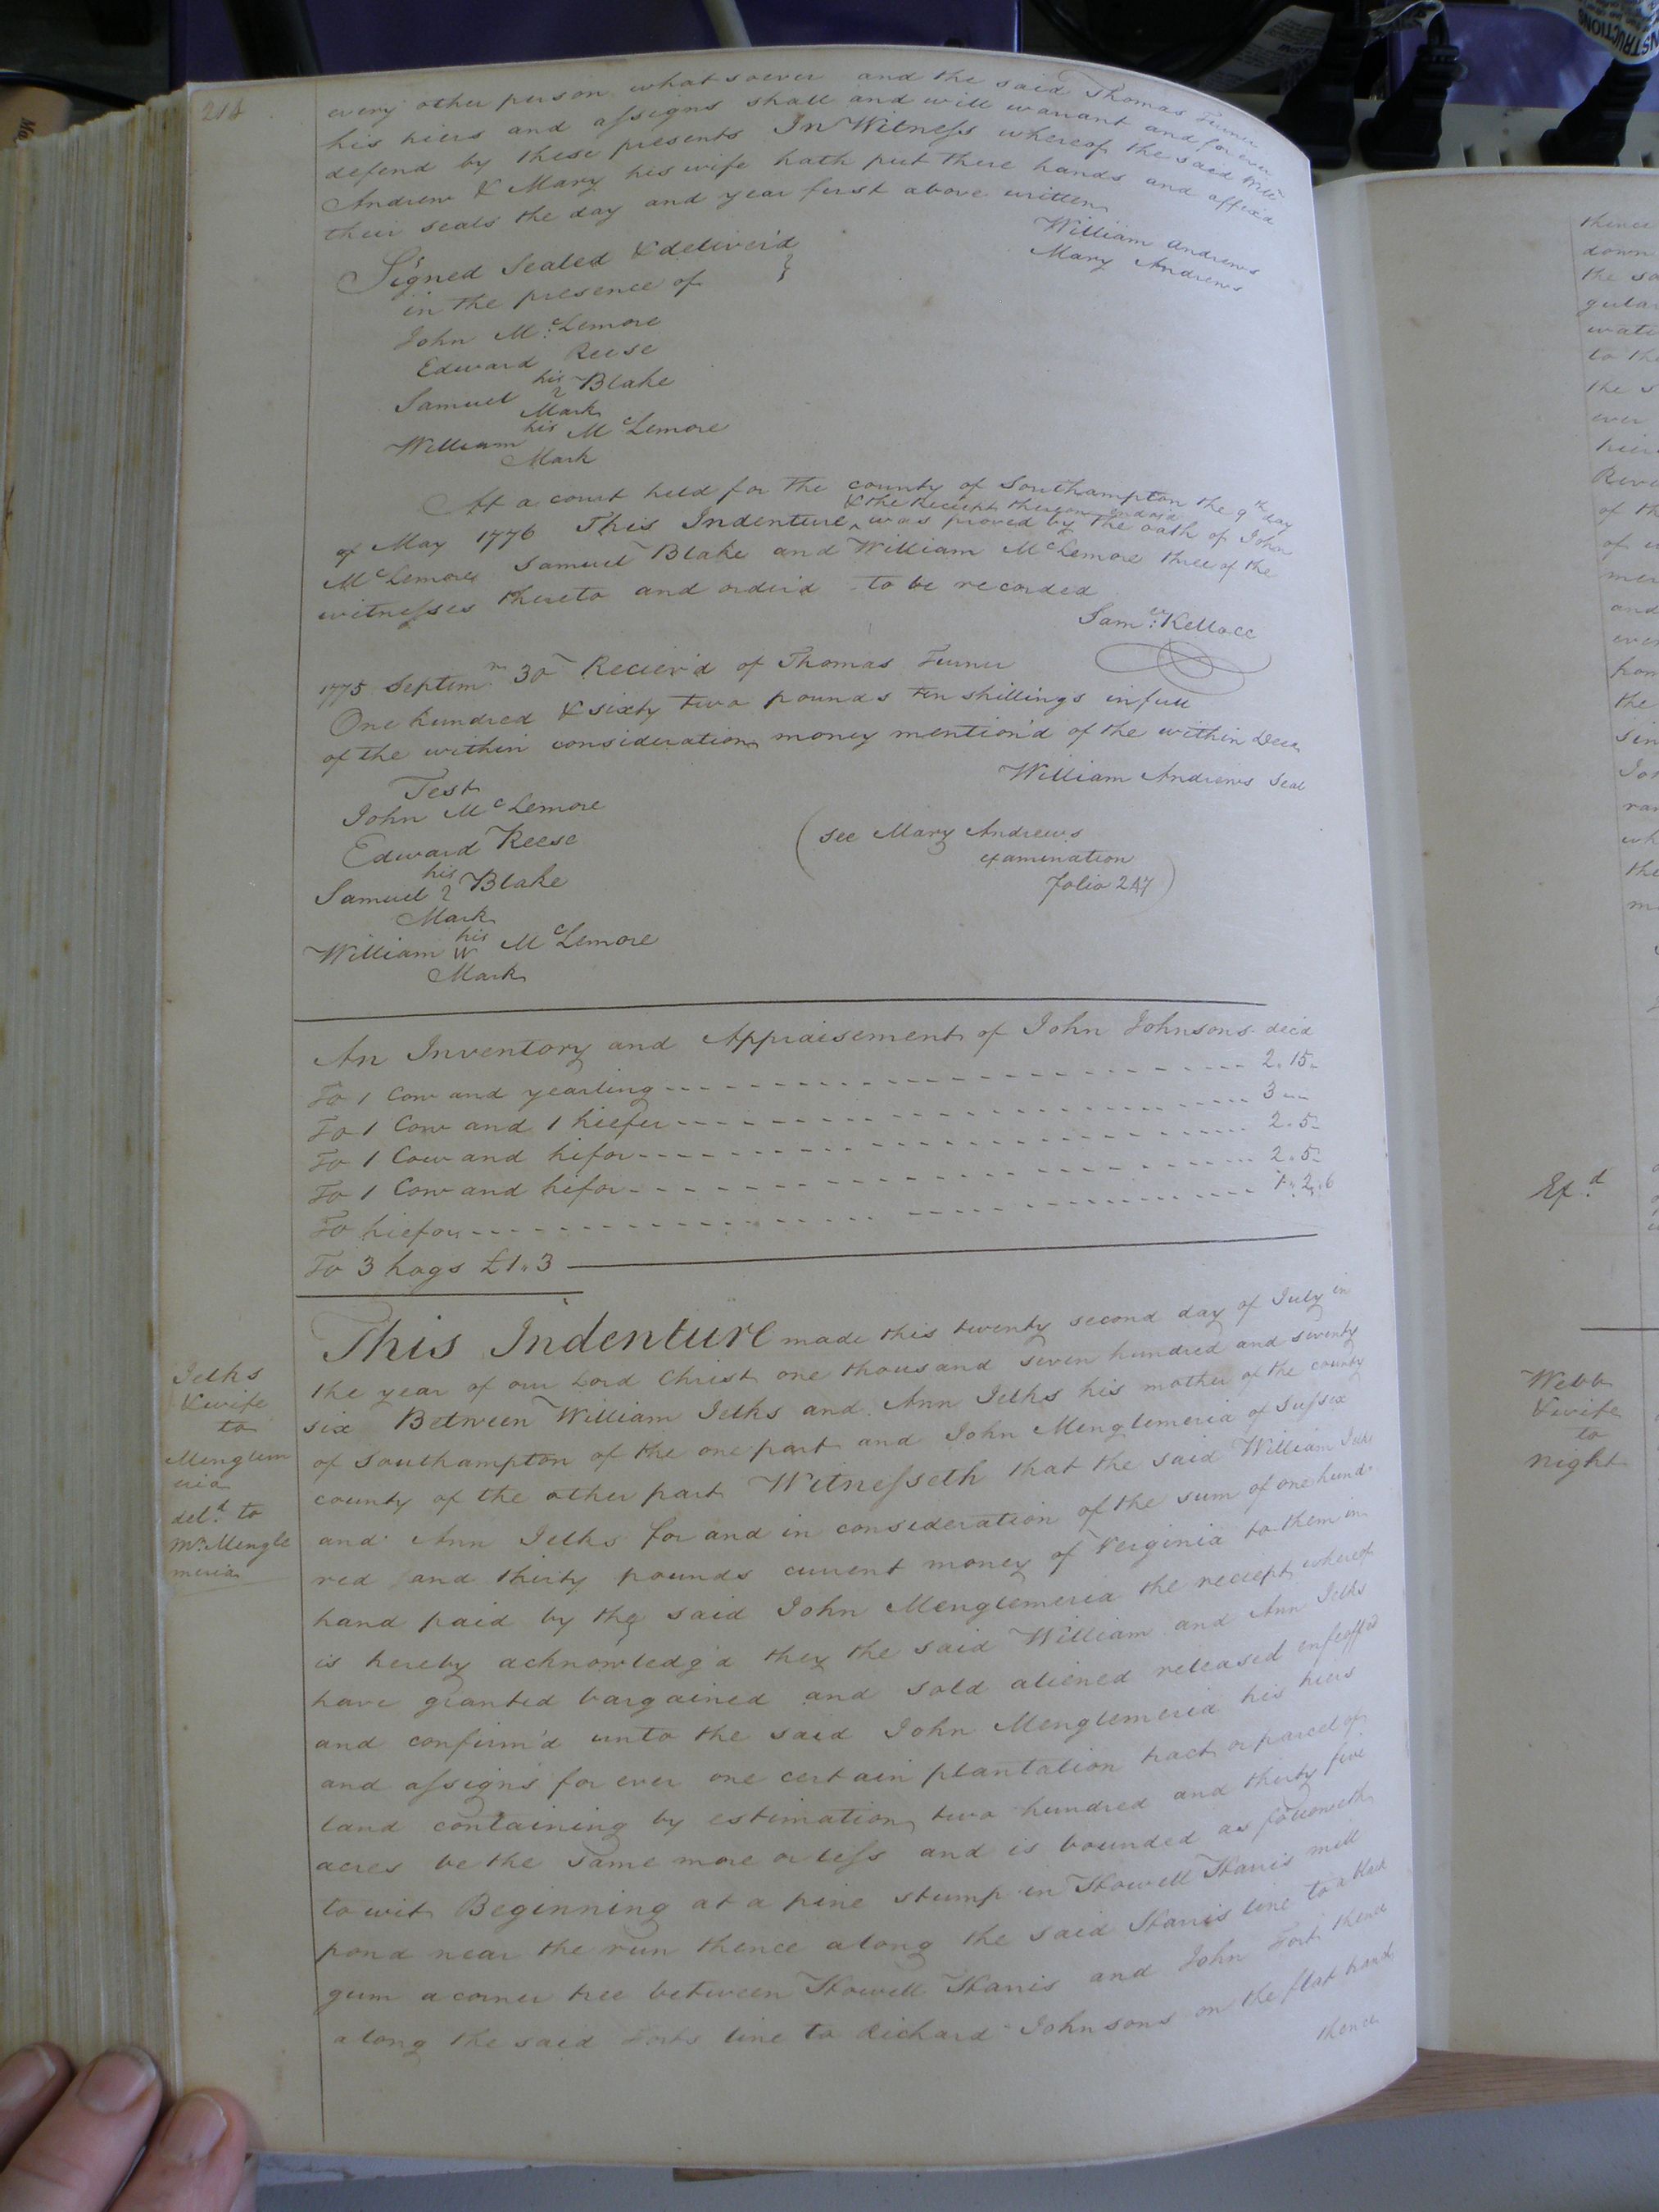 214
every other person whatsoever and the said Thomas Turner
his hiers and assigns shall and will warant and forever
defend by these presents In Witness whereof the said Willm
Andrew & Mary his wife hath put there hands and affix'd
their seals the day and year first above written
William Andrews
Mary Andrews
Signed Sealed & deliver'd
in the presence of
John McLemore
Edward Reese
his
Samuel 2 Blake
Mark
his
William McLemore
Mark
At a court held for the county of Southampton the 9th day
& the Reciept thereon endors'd
of May 1776 This Indenture ^ was proved by the oath of John
McLemore Samuel Blake and William McLemore three of the
witnesses thereto and order'd to be recorded
Saml: Kello CC
1775 Septemr 30 Reciev'd of Thomas Turner
One hundred & sixty two pounds ten shillings in full
of the within consideration money mention'd of the within Deed
William Andrews Seal
Test
John McLemore
Edward Reese
his
Samuel 2 Blake
Mark
his
William W McLemore
Mark
(see Mary Andrews
examination
folio 247)
An Inventory and Appraisement of John Johnsons dec'd
To 1 Cow and yearling 2.15.
To 1 Cow and 1 hiefer 3 --
To 1 Cow and hifor 2.5-
To 1 Cow and hifor 2.5-
To hiefor 1.2.6
To 3 hogs £1.3
Jelks
& wife
to
Menglem
eria
deld. to
Mr. Mengle
meria
This Indenture made this twenty second day of July in
the year of our Lord Christ one thousand seven hundred and seventy
six Between William Jelks and Ann Jelks his mother of the county
of Southampton of the one part and John Menglemeria of Sussex
county of the other part Witnesseth that the said William Jelks
and Ann Jelks for and in consideration of the sum of one hund-
red and thirty pounds current money of Verginia to them in
hand paid by the said John Menglemeria the reciept whereof
is hereby acknowledg'd they the said William and Ann Jelks
have granted bargained and sold aliened released enfeoff'd
and confirm'd unto the said John Menglemeria his hiers
and assigns for ever one certain plantation tract or parcel of
land containing by estimation two hundred and thirty five
acres be the same more or less and is bounded as followeth
to wit Beginning at a pine stump in Howell Harris mill
pond near the run thence along the said Harris line to a black
gum a corner tree between Howell Harris and John Fort thence
along the said Forts line to Richard Johnsons on the flat
thence
thence
down
gular
to the
ever
of th
and
ever
the
the
Exd.
Webb
& wife
to
night